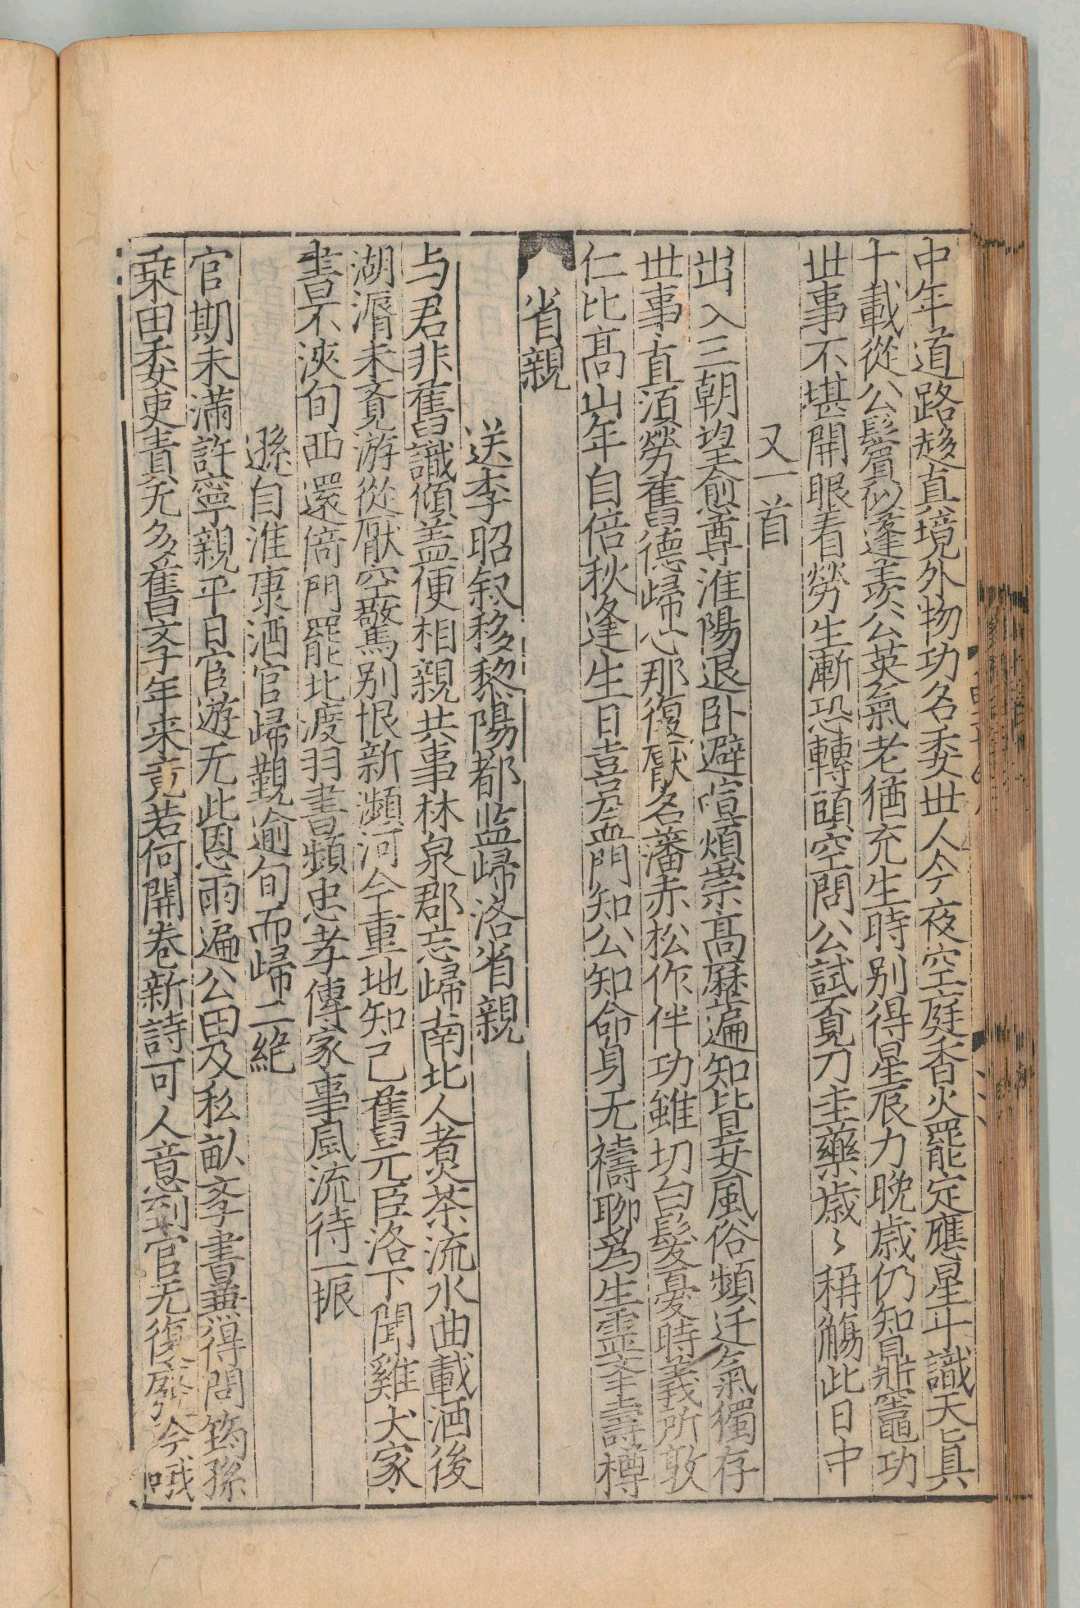 中年道路趍真境外物功名委丗人今夜空庭香火罷定應星斗識天真
十載從公鬢𩬊逢羨公英氣老猶充生時别得星辰力晚歲仍知鼎竈功
丗事不堪開眼看勞生漸恐轉頭空問公試覓刀圭藥歲〻稱觴此日中
又一首
出入三朝望愈尊淮陽退卧避喧煩崇高歷遍知皆妄風俗頻迁氣獨存
丗事直湏勞舊德歸心那復厭名藩赤松作伴功雖切白髮憂時義所敦
仁比高山年自倍秋逢生日喜盈門知公知命身无禱聊爲生靈奉壽樽
省親
送李昭叙移黎陽都监歸洛省親
与君非舊識傾盖便相親共事林泉郡忘歸南北人煑茶流水曲載酒後
湖漘未覔游從厭空驚别恨新瀕河今重地知己舊元臣洛下聞雞犬家
書不浹旬西還倚門罷北渡羽書頻忠孝傳家事風流待一振
遜自淮康酒官歸覲逾旬而歸二絶
官期未滿許寧親平日宦游无此恩雨遍公田及私畒学書兼得問筠孫
乗田委吏責无多舊学年来竟若何開巻新詩可人意到官无復廢吟哦